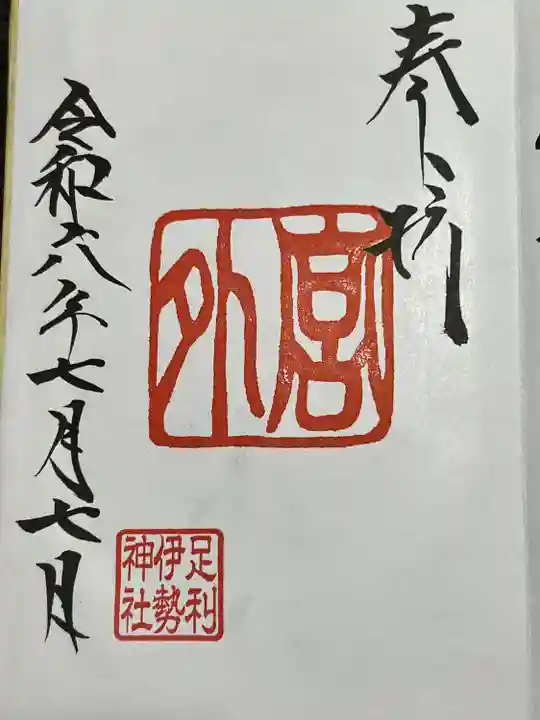 奉拝
外宮
足利
伊勢
神社
令和六年七月七月